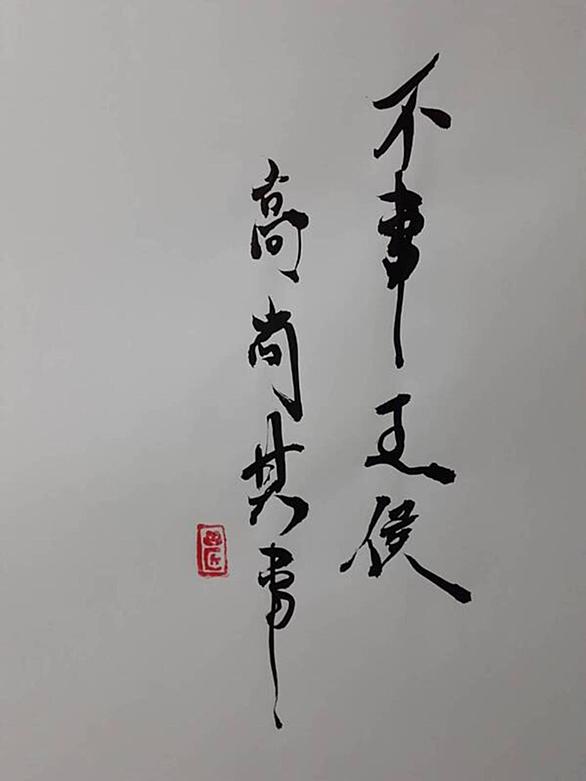 不事王侯
高尚其事